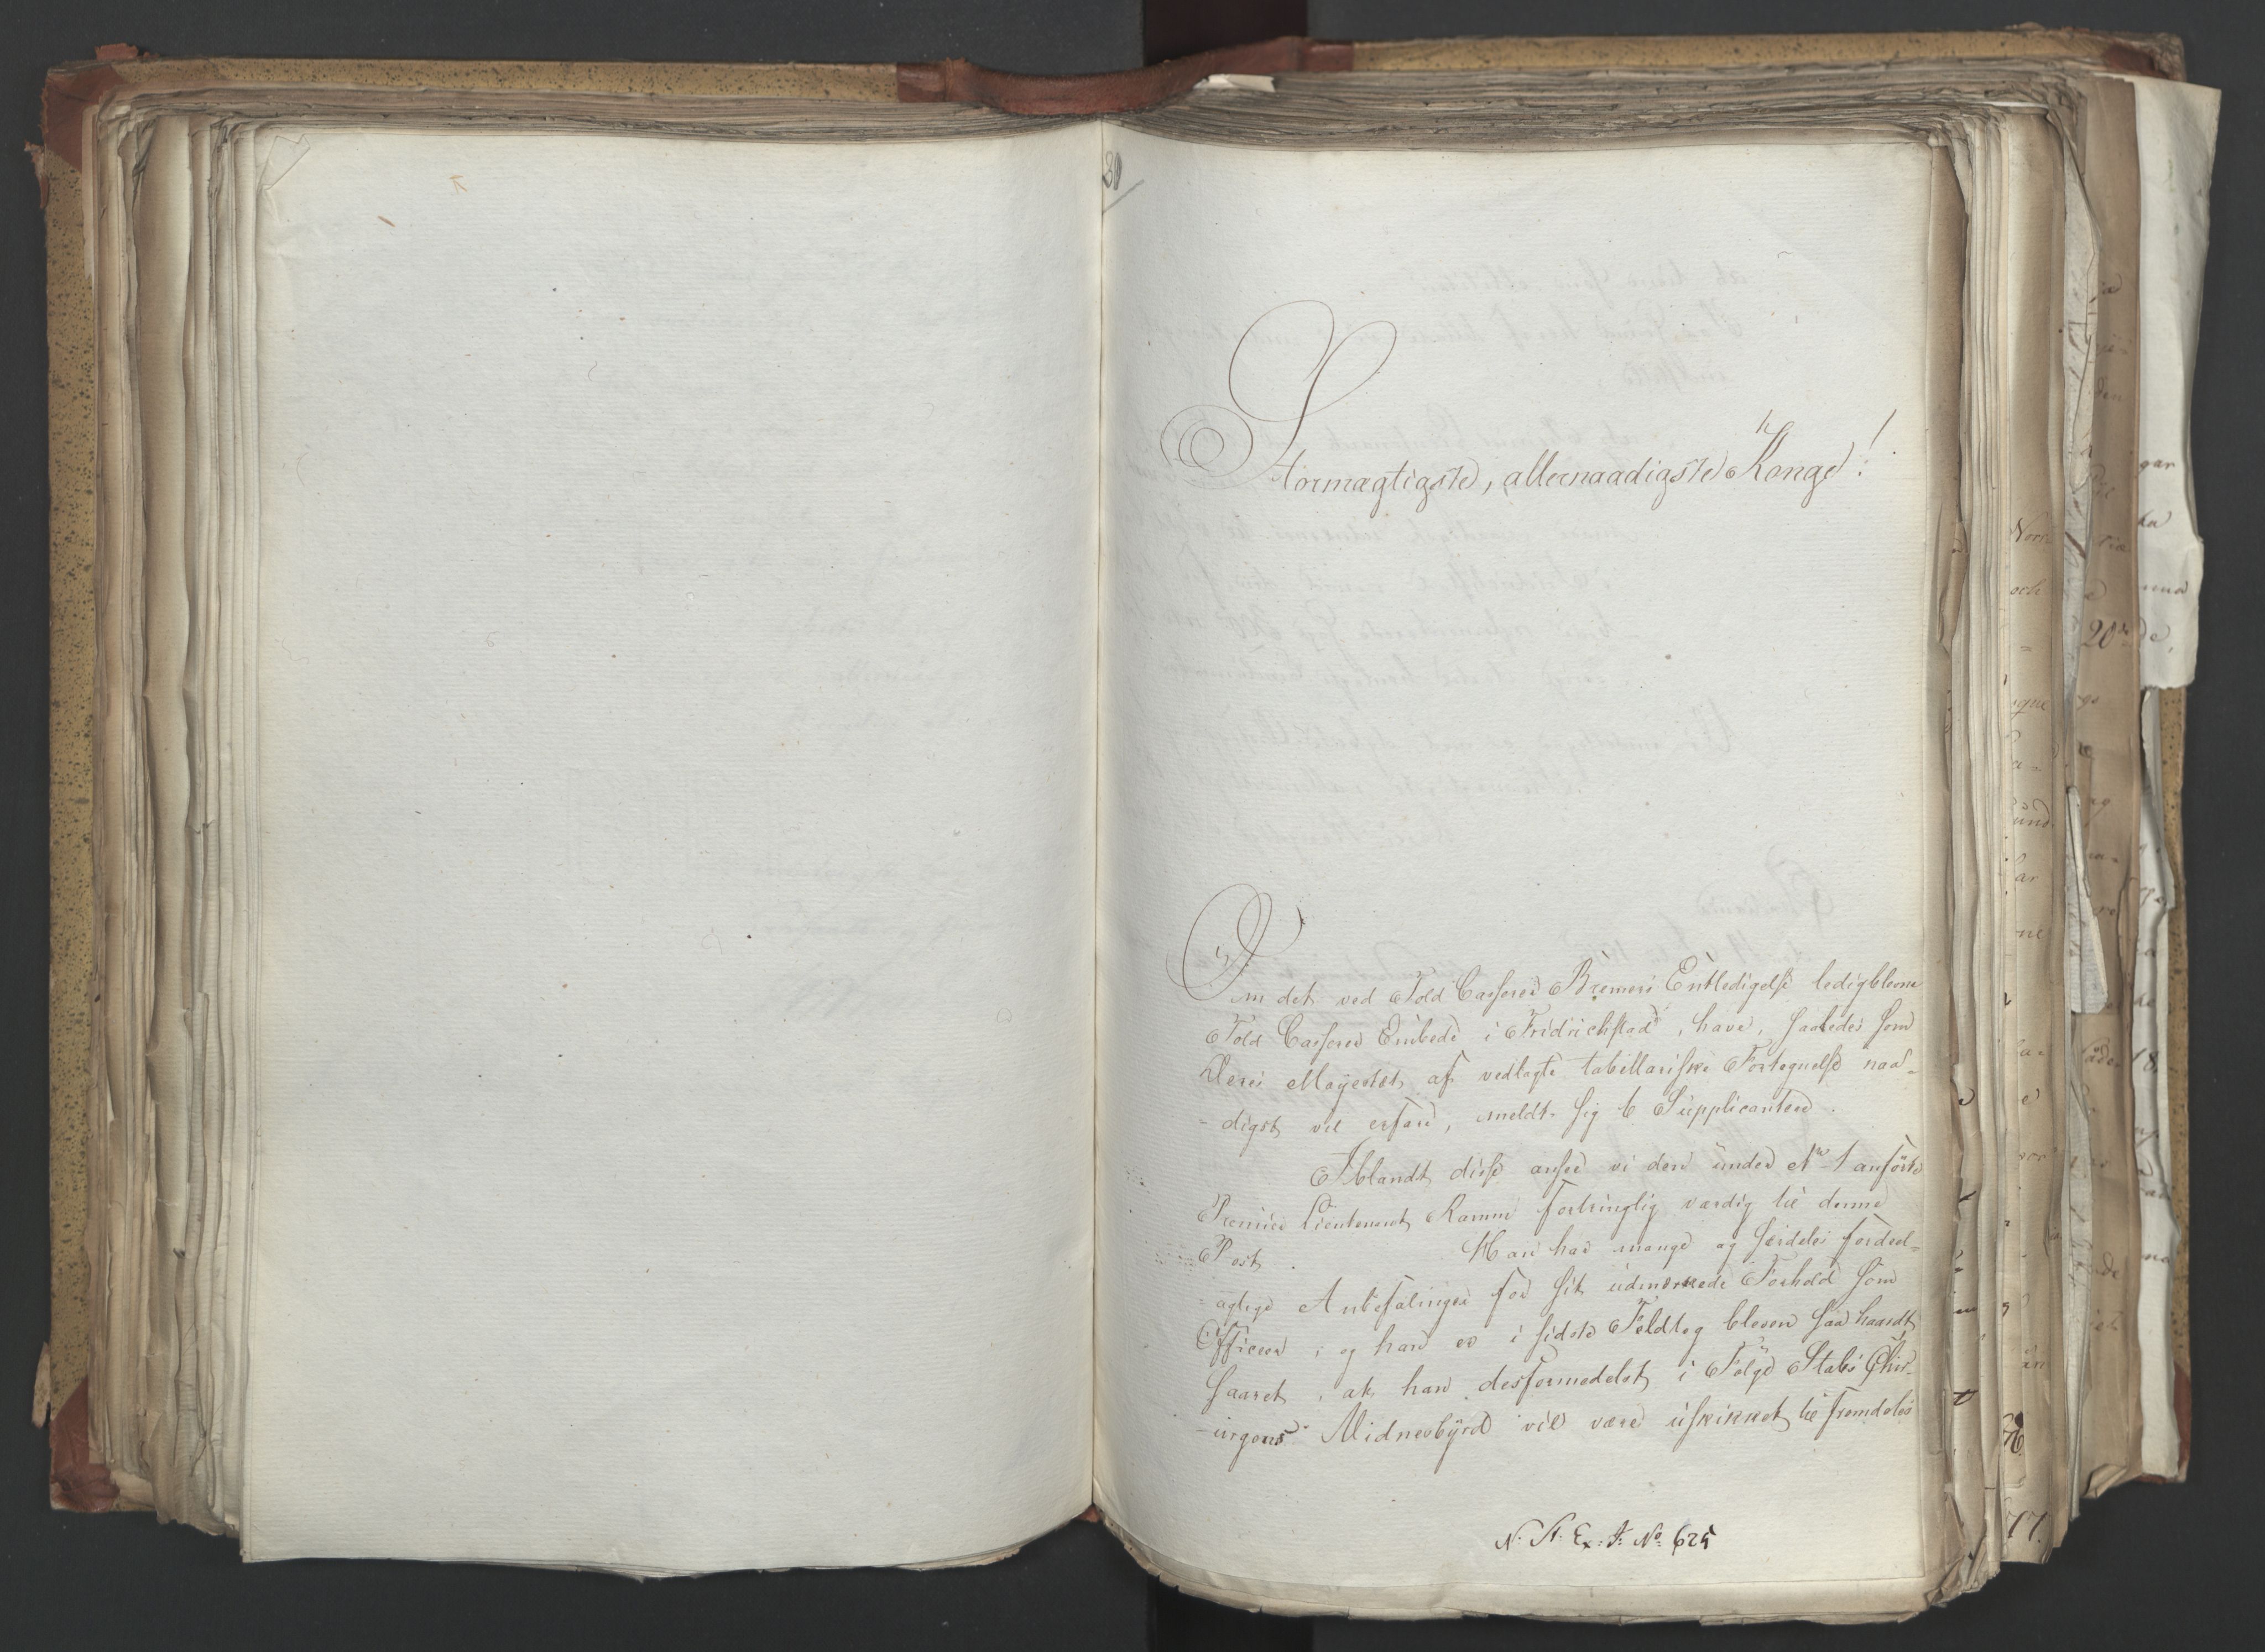 30
Stormægtigste, allernaadigste Konge!
Om det ved Told Casserer Bremers Entledigelse ledigblevne
Told Casserer Embede i Fridrichstad, have, saaledes som
Deres Majestæt af vedlagte tabellariske Fortegnelse naa-
-digst vil erfare, meldt sig 6 Supplicanter.
Iblandt disse ansee vi den under No 1 anførte
Premier Lieutenant Ramm fortrinlig værdig til denne
Post. Han har mange og særdeles fordeel-
-agtige Anbefalinger for sit udmærkede Forhold som
Officeer; og han er i sidste Feldtog bleven saa haardt
saaret, at han desformedelst i Følge Stabs Chir-
-urgens Vidnesbyrd vil være uskikket til fremdeles
N. St. Ex. J. No. 625